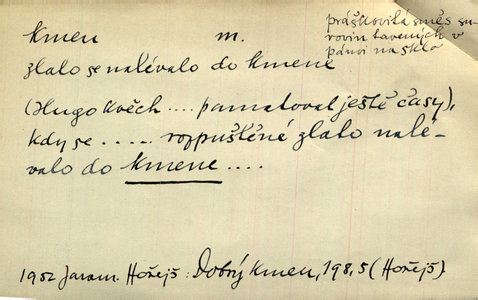 kmen m.
prášková směs su-
rovin tavených v
pánvi na sklo
zlato se nalévalo do kmene
(Hugo Kvěch .... pamatoval ještě časy),
kdy se ..... rozpuštěné zlato nalé-
valo do kmene ....
1952 Jarom. Hořejš: Dobrý kmen, 198,5 (Hořejš)